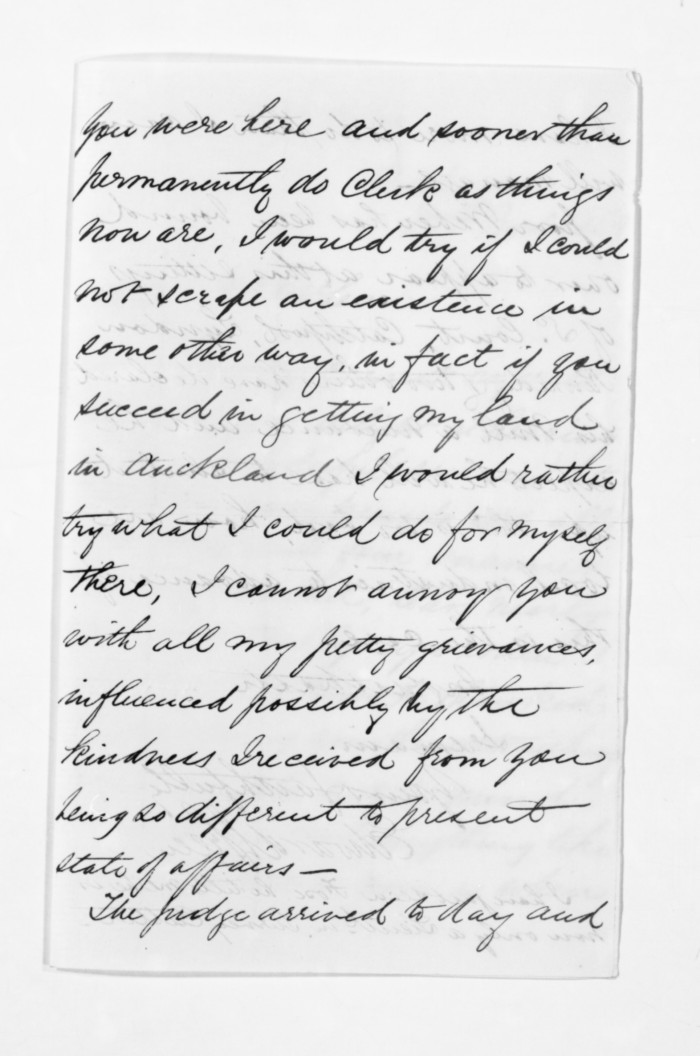 you were here and sooner than
permanently do Clerk as things
now are, I would try if I could
not scrape an existence in
some other way, in fact if you
succeed in getting my land
in Auckland I would rather
try what I could do for myself
there, I cannot annoy you
with all my petty grievances,
influenced possibly by the
kindness I received from you
being so different to present
state of affairs—
The judge arrived to day and